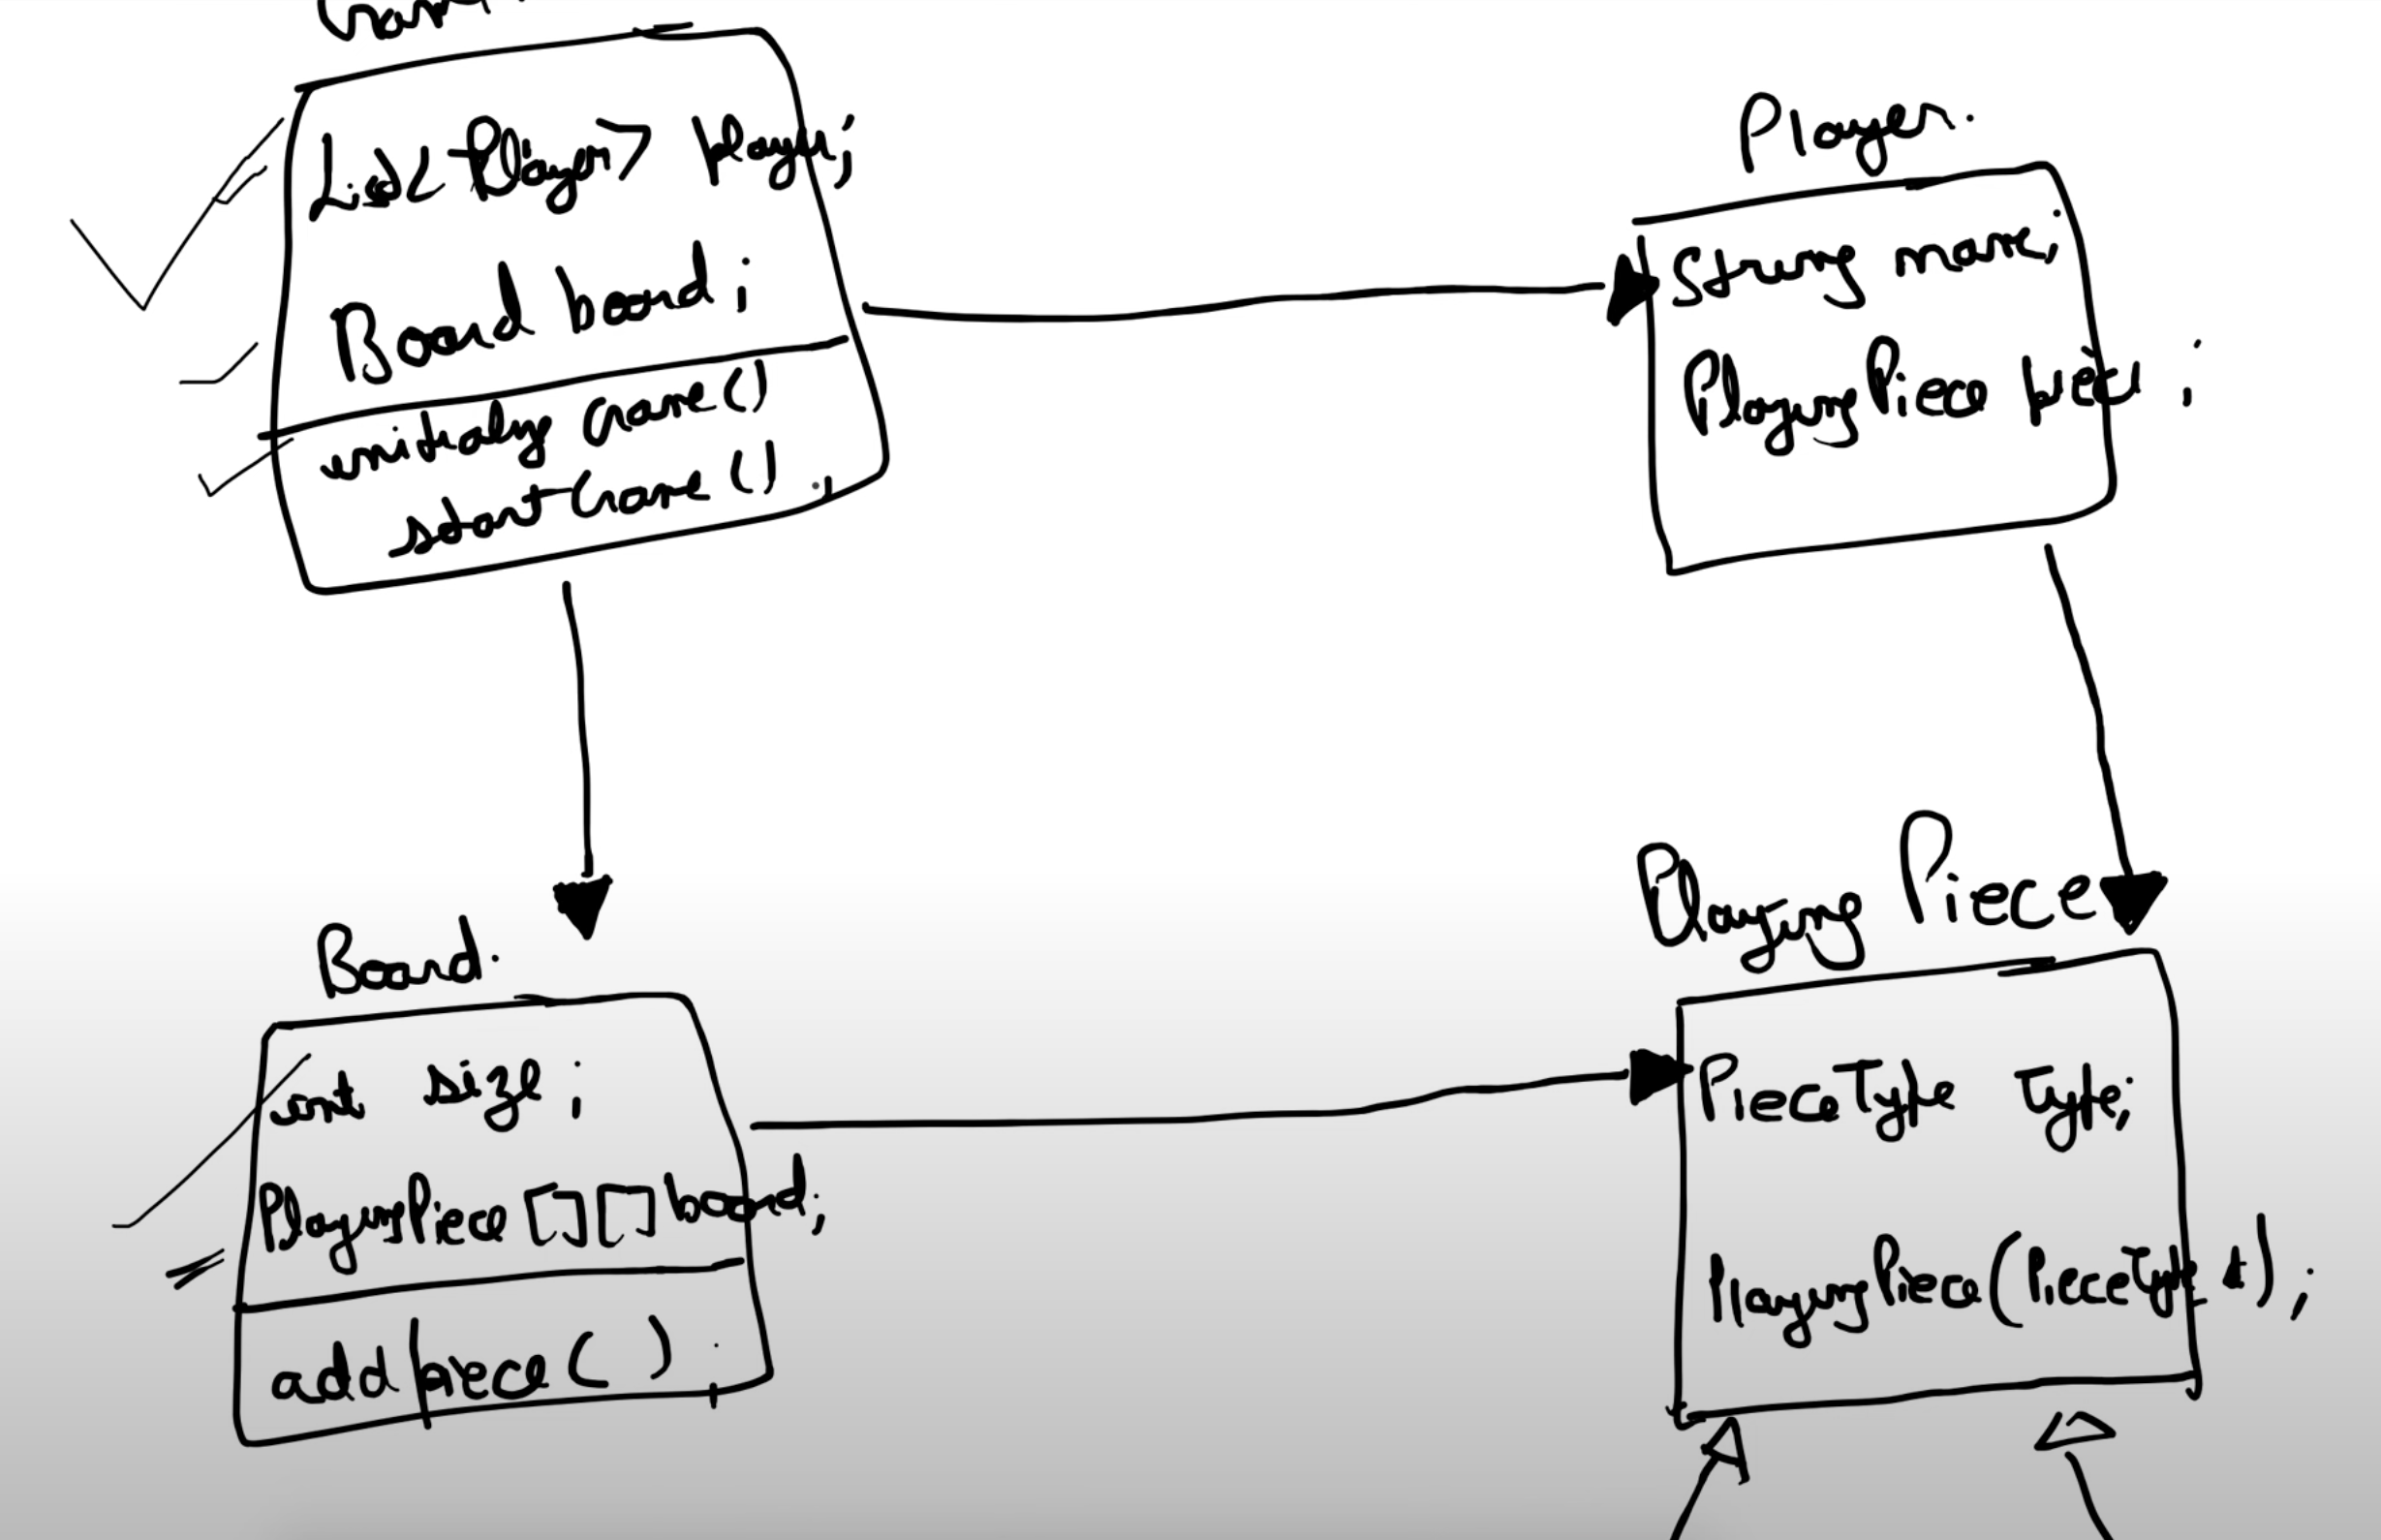 Game
List<Player> player;
Board board;
initialize Game()
start Game();
Player.
String name;
PlayingPiece piece;
Board.
int size;
PlayingPiece[][] board;
addpiece();
Playing Piece
PieceType Type;
PlayingPiece(PieceType t);